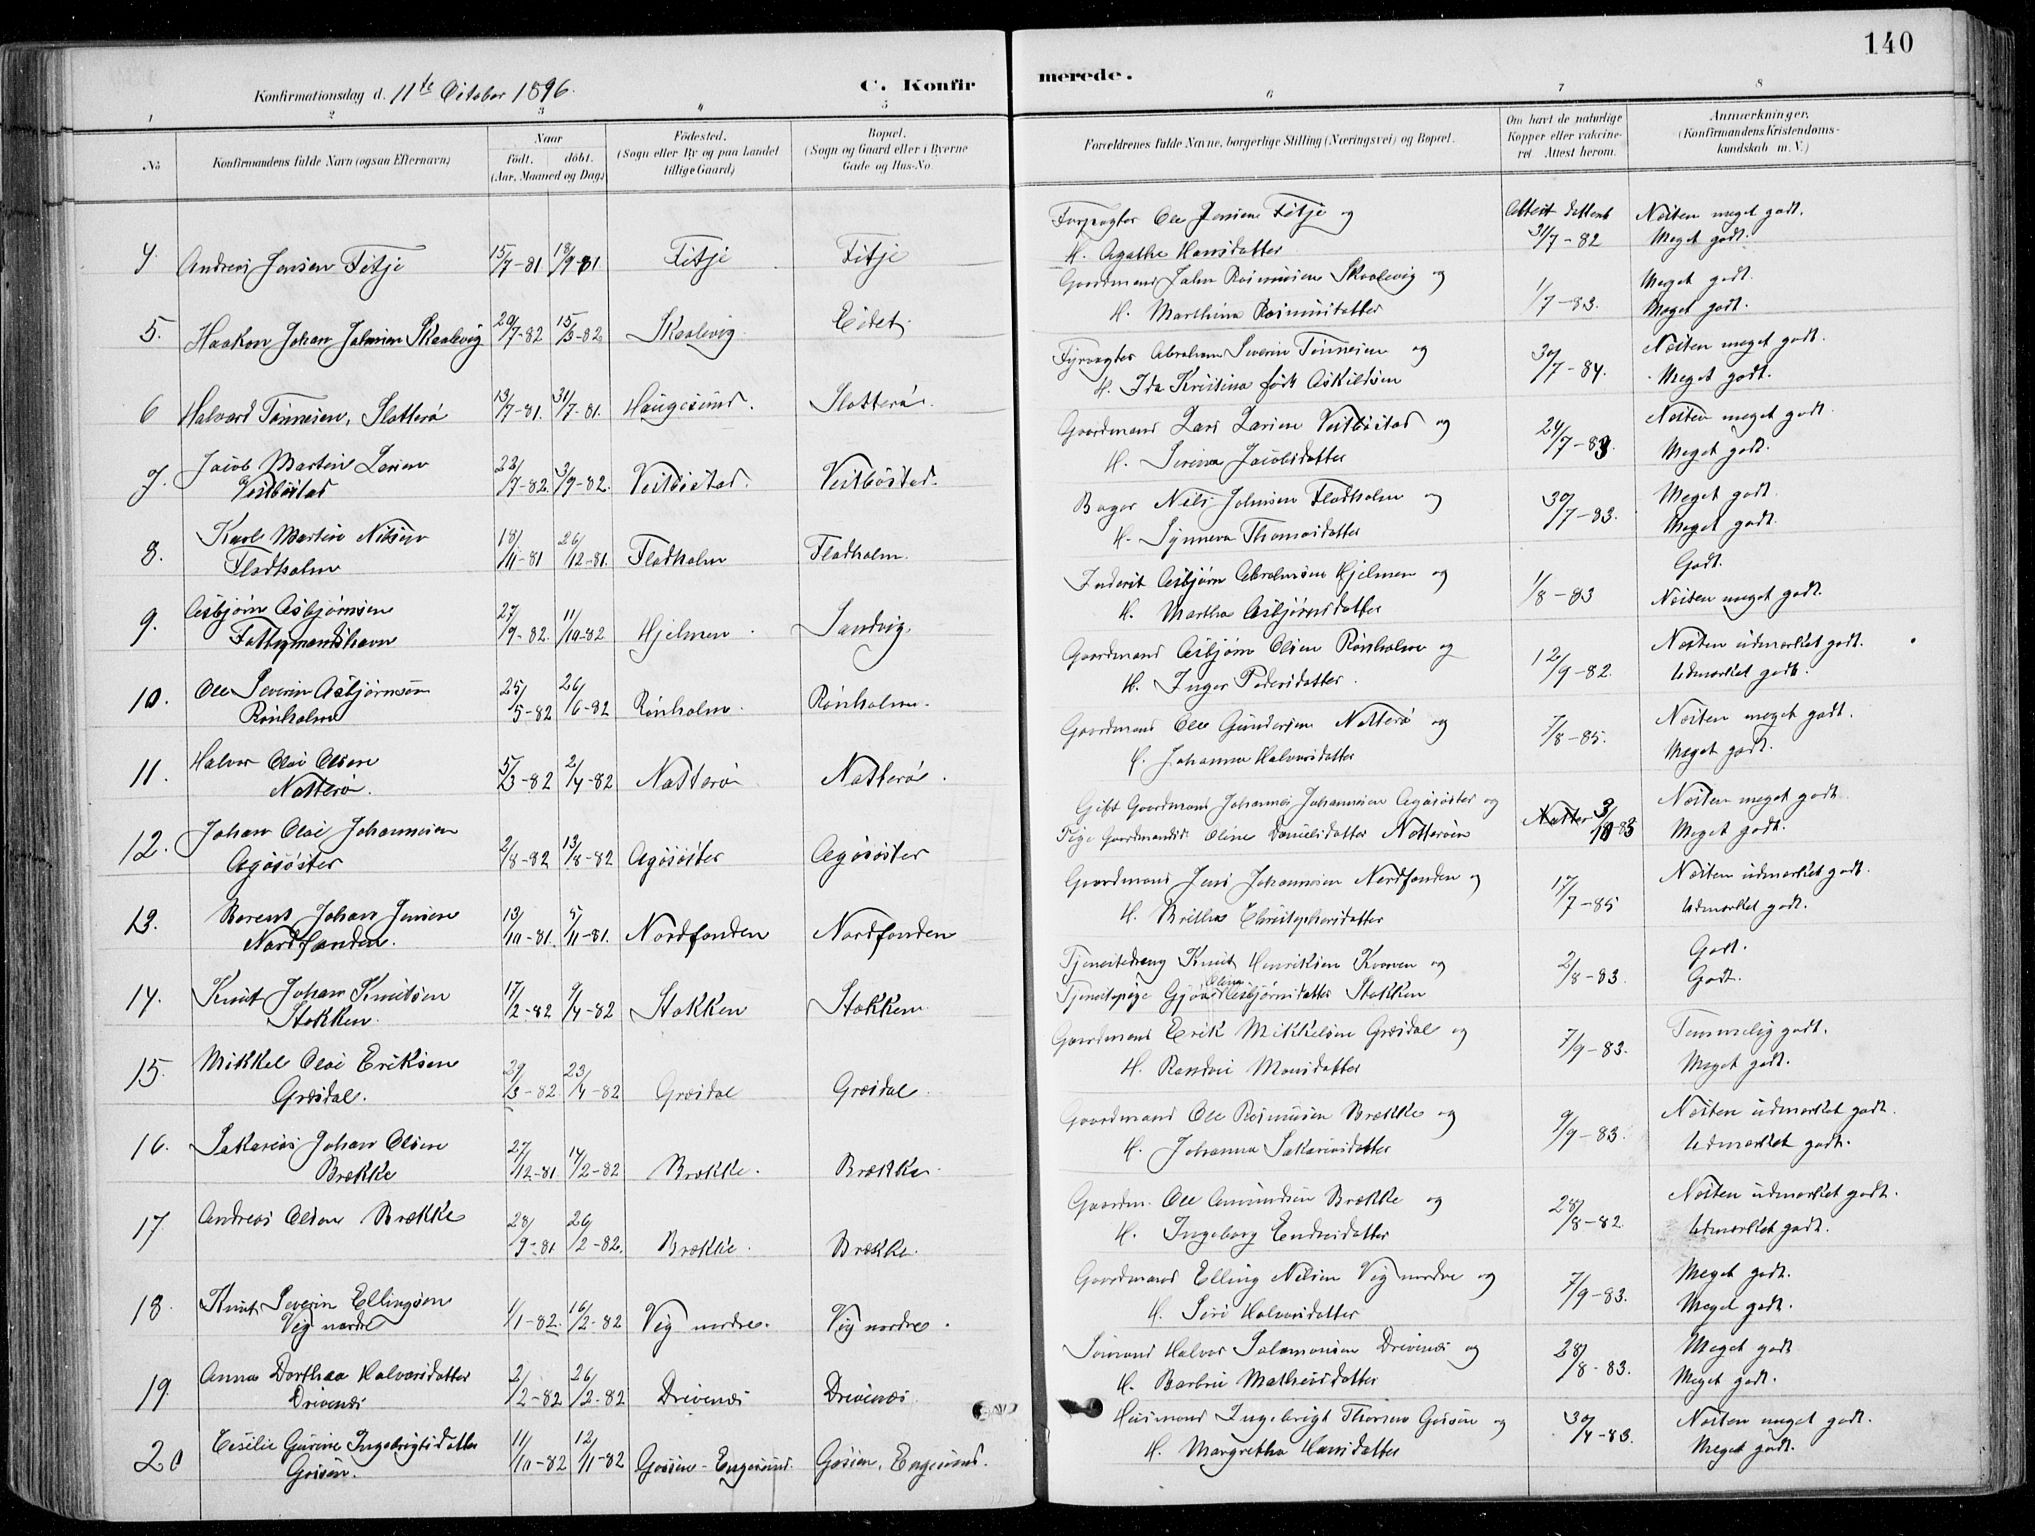 140
Konfirmationsdag d. 11te October 1896.
C. Konfirmerede.
1 2 3 4 5 6 7 8
No
Konfirmandens fulde Navn (ogsaa Efternavn)
Naar
født. døbt.
(Aar, Maaned og Dag.)
Fødested.
(Sogn eller By og paa Landet
tillige Gaard.)
Bopæl.
(Sogn og Gaard eller i Byerne
Gade og Hus-No.
Forældrenes fulde Navne, borgerlige Stilling (Næringsvei) og Bopæl.
Om havt de naturlige
Kopper eller vakcine-
ret. Attest herom.
Anmærkninger.
(Konfirmandens Kristendoms-
kundskab m. V.)
4 Andreas Jensen Fitje 15/7-81 18/9-81 Fitje Fitje
Ole Jensen Fitje og
H. Agathe Hansdatter
Attest 31/7-82
Næsten meget godt.
Meget godt.
5. Haakon Johan Johnsen Skaalevig 29/7-82 Skaalevig. Eidet.
Gaardmand John Rasmusen Skaalevig og
H. Marthina Rasmusdatter
1/7-83.
Meget godt.
Meget godt.
6 Halvard Tønnesen, Slotterø 13/7-81. 31/7-81. Haugesund. Slotterø.
Fyrvogter Abraham Severin Tønnesen og
H. Ida Kristina født Askildsen
30/7-84.
Næsten meget godt.
Meget godt.
7. Jacob Martin Larsen
Vestbøstad
22/7-82. 3/9-82. Vestbøstad. Vestbøstad.
Gaardmand Lars Larsen Vestbøstad og
H. Serina Jacobsdatter
24/7-83.
Næsten meget godt.
Meget godt.
8. Karl Martin Nilsen
Fladholm
18/11-81 26/12-81. Fladholm Fladholm.
Bager Nels Johnsen Fladholm og
H. Synneva Thomasdatter
30/7-83.
Meget godt.
Meget godt.
9. Asbjørn Asbjørnsen
Fattigmandshavn
27/9-82. 11/10-82 Hjelmen. Sandvig.
Inderst Asbjørn Abrahamsen Hjelmen og
H. Martha Asbjørnsdatter
1/8-83
Godt.
Næsten meget godt.
10. Ole Severin Asbjørnsen
Rønholm
25/5-82 26/6-82 Rønholm. Rønholm.
Gaardmand Asbjørn Olsen Rønholm og
H. Inger Pedersdatter.
12/9-82.
Næsten udmærket godt.
Udmærket godt.
11. Halvor Olai Olsen
Natterø.
5/3-82 2/4-82 Natterø Natterø.
Gaardmand Ole Gundersen Natterø og
H. Johanna Halvorsdatter
7/8-85.
Næsten meget godt.
Meget godt.
12. Johan Olai Johannesen
Agøsøster
2/8-82 13/8-82 Agøsøster Agøsøster
Gift Gaardmand Johannes Johannesen Agøsøster og
Pige Oline Danielsdatter Natterøen
3/10-83
Næsten meget godt.
Meget godt.
13. Berent Johan Jensen
Nordfonden.
13/10-81. 5/11-81. Nordfonden Nordfonden
Gaardmand Jens Johannesen Nordfonden og
H. Britha Christophersdatter
17/7-85
Næsten udmærket godt.
Udmærket godt.
14. Knut Johan Knutsen
Stokken.
17/2-82 9/4-82 Stokken Stokken
Tjenestedreng Knut Henriksen Kvarven og
Tjenestepige Oline Asbjørnsdatter Stokken
2/8-83.
Godt.
Godt.
15. Mikkel Olai Eriksen
Græsdal.
29/3-82. 23/4-82 Græsdal Græsdal.
Gaardmand Erik Mikkelsen Græsdal og
H. Randvei Monsdatter
7/9-83.
Temmelig godt.
Meget godt.
16. Sakarias Johan Olsen
Brække
27/12-81 14/2-82 Brække. Brække.
Gaardmand Ole Rasmusen Brække og
H. Johanna Sakariasdatter
9/9-83.
Næsten udmærket godt.
Udmærket godt.
17. Andreas Olsen Brække 28/9-81 26/2-82. Brække. Brække.
Gaardm. Ole Amundsen Brække og
H. Ingeborg Endresdatter
28/8-82.
Næsten udmærket godt.
Udmærket godt.
18. Knut Severin Ellingsen
Vig nordre
1/1-82. 16/2-82 Vig nordre. Vig nordre.
Gaardmand Elling Nilsen Vig nordre og
H. Siri Halvorsdatter
7/9-83.
Meget godt.
Meget godt.
19. Anna Dorthea Halvorsdatter
Drivenæs
2/2-82 26/2-82 Drivenæs Drivenæs.
Sømand Halvor Salamonsen Drivenæs og
H. Barbru Matheusdatter
28/8-83.
Meget godt.
Meget godt.
20 Cesilie Gurine Ingebrigtsdatter
Gåsøen.
11/10-82 12/11-82 Gåsøen-Engesund. Gåsøen, Engesund.
Husmand Ingebrigt Thorsen Gåsøen og
H. Margretha Hansdatter
30/4-83.
Næsten meget godt.
Meget godt.